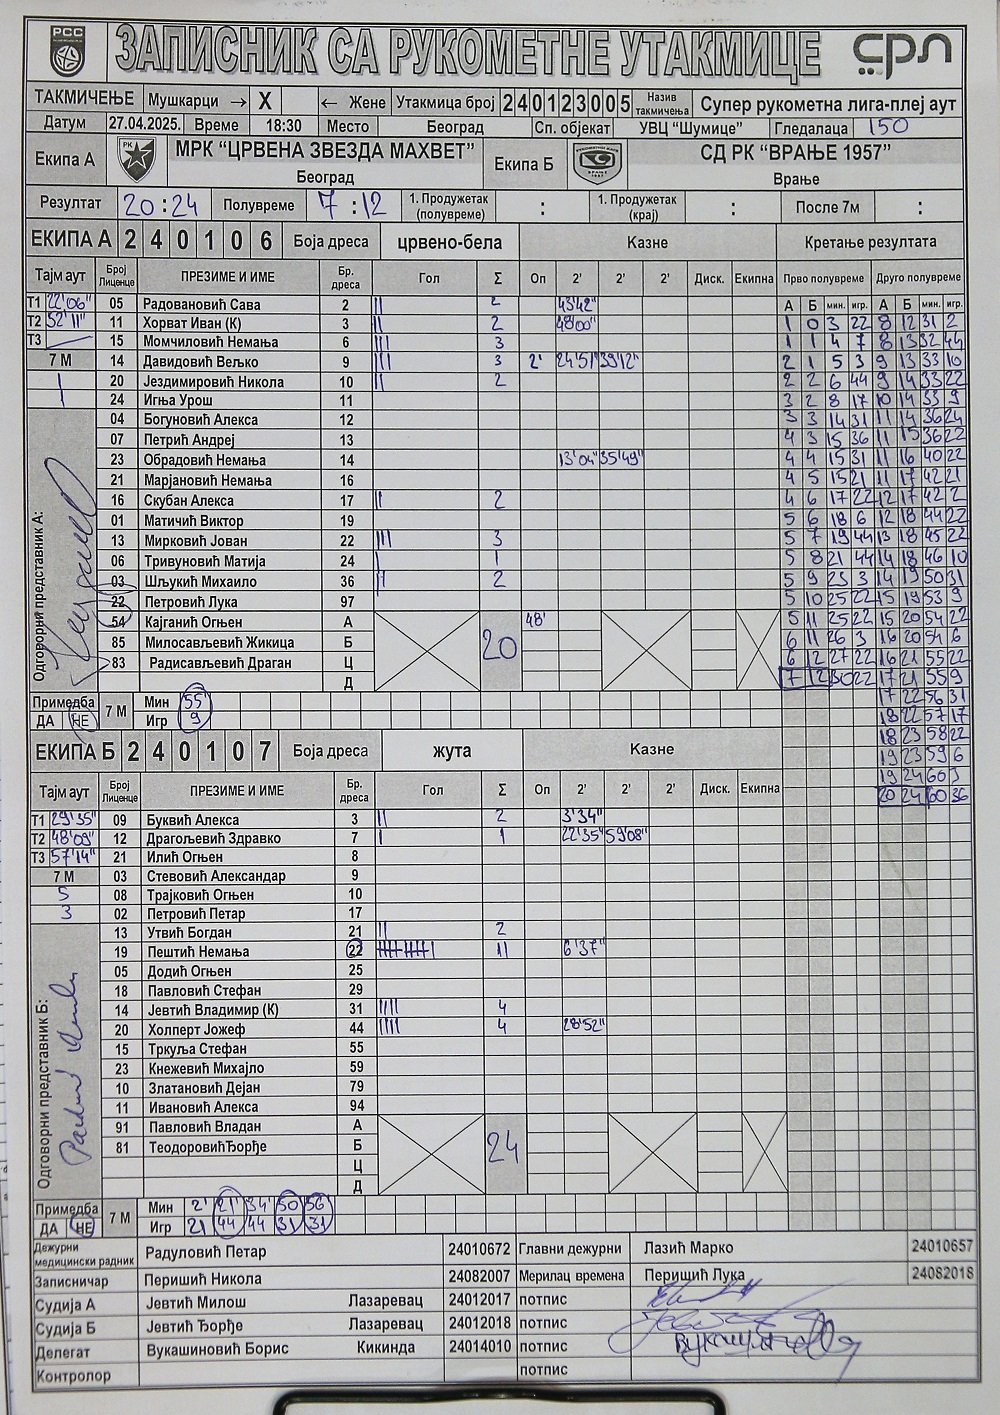 РСС
ЗАПИСНИК СА РУКОМЕТНЕ УТАКМИЦЕ
СРЛ
ТАКМИЧЕЊЕ Мушкарци → X ← Жене Утакмица број 240123005 Назив такмичења Супер рукометна лига-плеј аут
Датум 27.04.2025. Време 18:30 Место Београд Сп. објекат УВЦ “Шумице” Гледалаца 150
Екипа А МРК “ЦРВЕНА ЗВЕЗДА МАХВЕТ” Београд Екипа Б СД РК “ВРАЊЕ 1957” Врање
Резултат 20:24 Полувреме 7:12 1. Продужетак (полувреме) : 1. Продужетак (крај) : После 7м :
ЕКИПА А 240106 Боја дреса црвено-бела Казне Кретање резултата
Тајм аут Број Лиценце ПРЕЗИМЕ И ИМЕ Бр. дреса Гол Σ Оп 2' 2' 2' Диск. Екипна Прво полувреме Друго полувреме
А Б мин. игр. А Б мин. игр.
Т1 22'06" 05 Радовановић Сава 2 || 2 43'42"
Т2 52'11" 11 Хорват Иван (К) 3 || 2 48'00" 1 0 3 22 8 12 31 2
Т3 15 Момчиловић Немања 6 ||| 3 1 1 4 7 8 13 32 44
7 М 14 Давидовић Вељко 9 ||| 3 2' 24'51" 39'12" 2 1 5 3 9 13 33 10
| 20 Јездимировић Никола 10 || 2 2 2 6 44 9 14 33 22
24 Игња Урош 11 3 2 8 17 10 14 33 9
04 Богуновић Алекса 12 3 3 14 31 11 14 36 24
07 Петрић Андреј 13 4 3 15 36 11 15 36 22
23 Обрадовић Немања 14 13'04" 35'49" 4 4 15 31 11 16 40 22
21 Марјановић Немања 16 4 5 15 21 11 17 42 21
16 Скубан Алекса 17 || 2 4 6 17 22 12 17 42 2
01 Матичић Виктор 19 5 6 18 6 12 18 44 22
13 Мирковић Јован 22 ||| 3 5 7 19 44 13 18 45 22
06 Тривуновић Матија 24 | 1 5 8 21 44 14 18 46 10
03 Шљукић Михаило 36 || 2 5 9 23 3 14 19 50 31
22 Петровић Лука 97 5 10 25 22 15 19 53 9
54 Кајганић Огњен А 48' 5 11 25 22 15 20 54 22
85 Милосављевић Жикица Б 20 6 11 26 3 16 20 54 6
83 Радисављевић Драган Ц 6 12 27 22 16 21 55 22
Д 7 12 30 22 17 21 55 9
Одговорни представник А:
17 22 56 31
Примедба ДА НЕ 7 М Мин 55
Игр 9
18 22 57 17
18 23 58 22
19 23 59 6
19 24 60 3
20 24 60 36
ЕКИПА Б 240107 Боја дреса жута Казне
Тајм аут Број Лиценце ПРЕЗИМЕ И ИМЕ Бр. дреса Гол Σ Оп 2' 2' 2' Диск. Екипна
Т1 29'35" 09 Буквић Алекса 3 || 2 3'34"
Т2 48'09" 12 Драгољевић Здравко 7 | 1 22'35" 59'08"
Т3 57'14" 21 Илић Огњен 8
7 М 03 Стевовић Александар 9
5 08 Трајковић Огњен 10
3 02 Петровић Петар 17
13 Утвић Богдан 21 || 2
19 Пештић Немања 22 11 6'37"
05 Додић Огњен 25
18 Павловић Стефан 29
14 Јевтић Владимир (К) 31 |||| 4
20 Холперт Јожеф 44 |||| 4 28'52"
15 Тркуља Стефан 55
23 Кнежевић Михајло 59
10 Златановић Дејан 79
11 Ивановић Алекса 94
91 Павловић Владан А
81 ТеодоровићЂорђе Б 24
Ц
Д
Одговорни представник Б:
Примедба ДА НЕ 7 М Мин 2' 21' 34' 50 56
Игр 21 44 44 31 31
Дежурни медицински радник Радуловић Петар 24010672 Главни дежурни Лазић Марко 24010657
Записничар Перишић Никола 24082007 Мерилац времена Перишић Лука 24082018
Судија А Јевтић Милош Лазаревац 24012017 потпис
Судија Б Јевтић Ђорђе Лазаревац 24012018 потпис
Делегат Вукашиновић Борис Кикинда 24014010 потпис
Контролор потпис